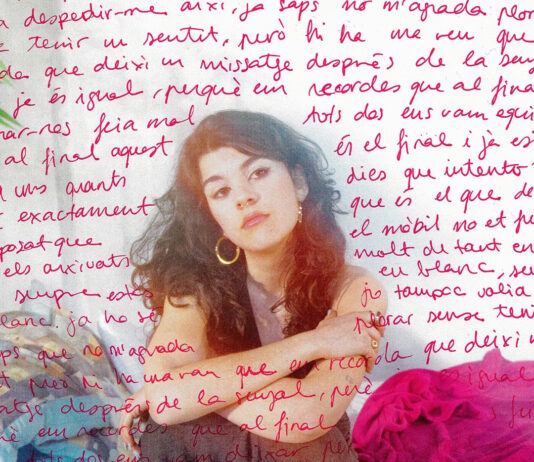 a despedir-me així, ja saps no m'agrada plor
tenir un sentit, però hi ha una veu que
que deixi un missatge després de la senyal
ja és igual, perquè em recordes que al final
nar-nos feia mal tots dos ens vam equi
al final aquest és el final i ja es
uns quants dies que intento
exactament que és el que de
posat que el mòbil no et pe
els arxivats molt de tant en
sempre estàs en blanc, se
blanc. ja no sé jo tampoc volia
saps que no m'agrada plorar sense teni
però hi ha una veu que em recorda que deixi
missatge després de la senyal, però igual
em recordes que al final
tots dos ens vam deixar